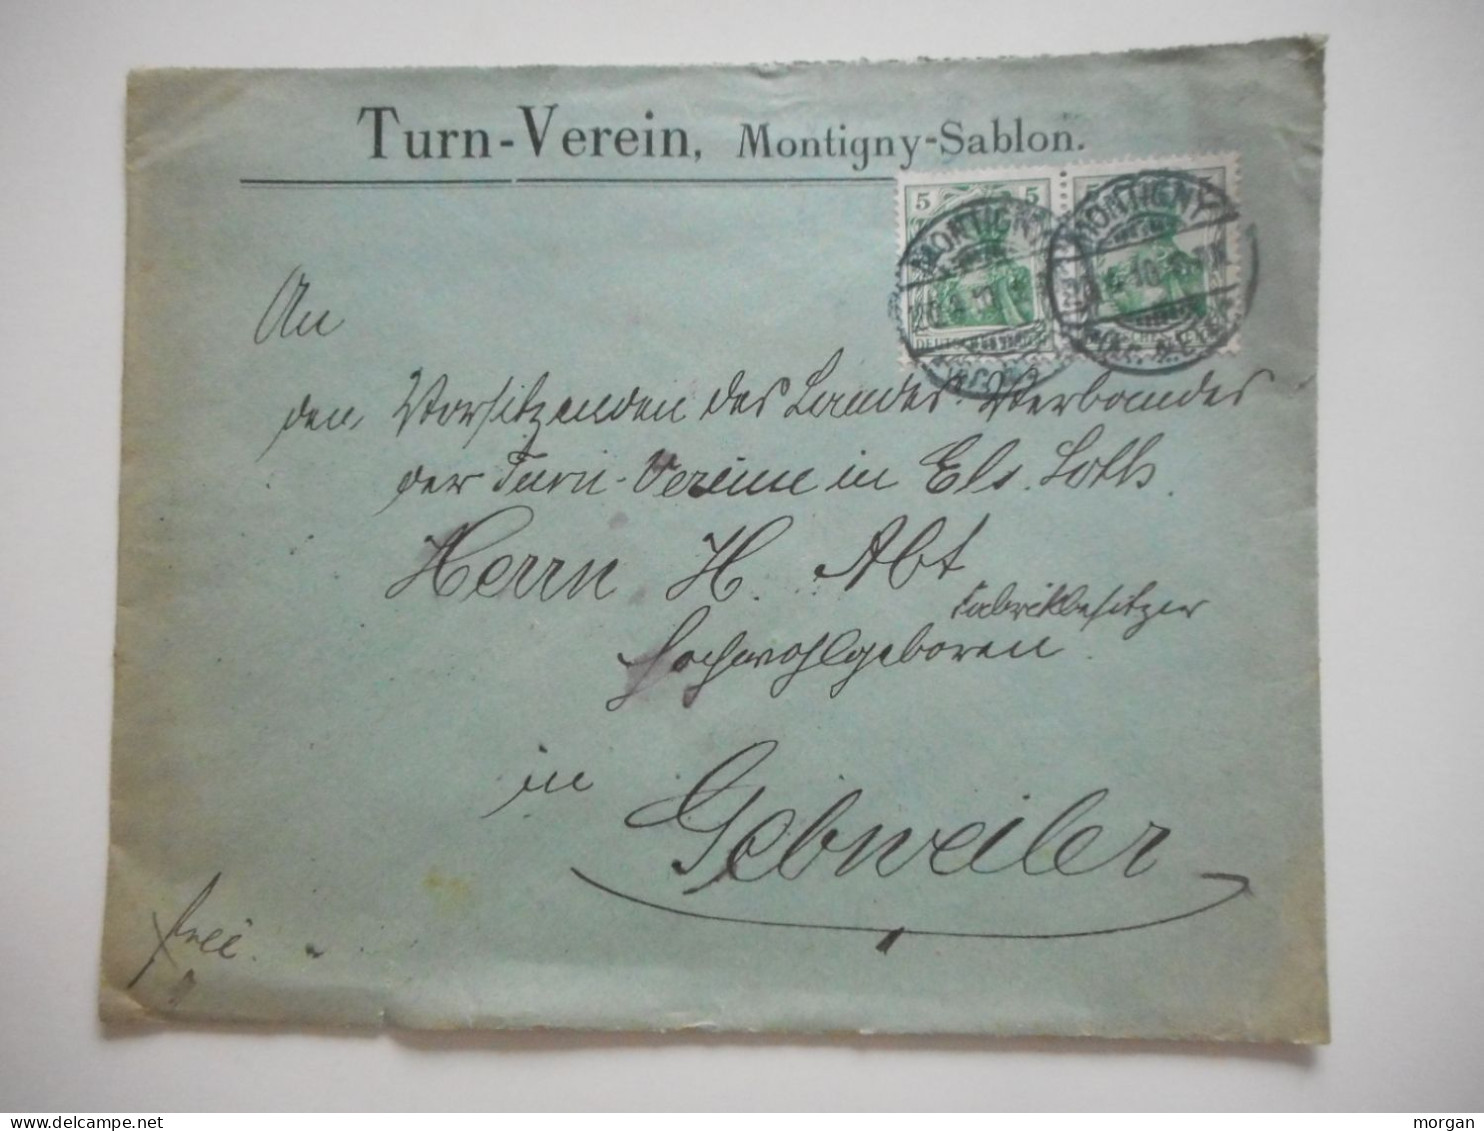 Turn-Verein, Montigny-Sablon.
5 5 5
MONTIGNY MONTIGNY
(Kr. METZ)
An
den Vorsitzenden des Landes-Verbandes
der Turn-Vereine in Els. Loth.
Herrn H. Abt
Fabrikbesitzer
Hochwohlgeboren
in
Gebweiler
frei.
morgan
delcampe.net